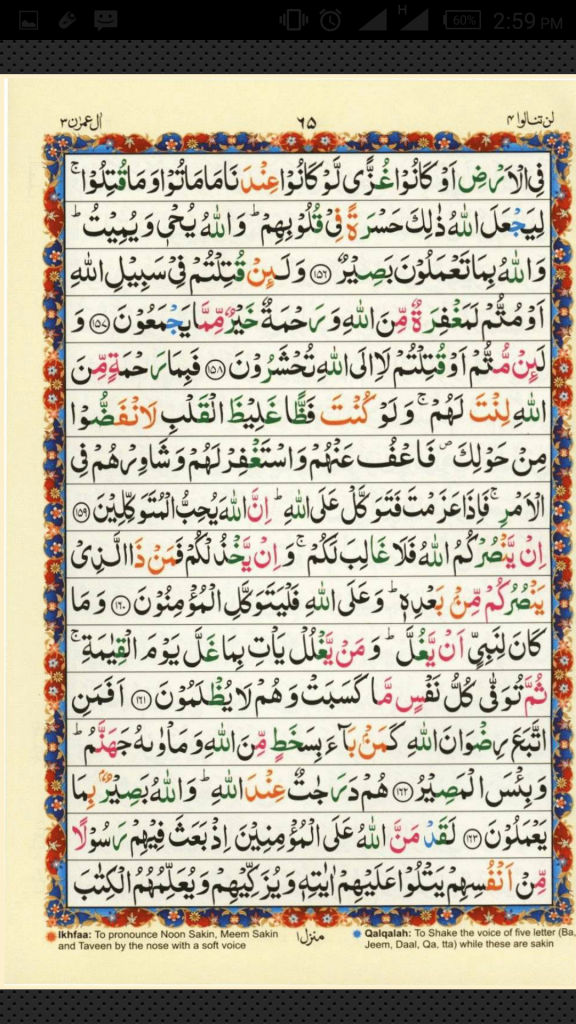 H 60% 2:59 PM
لن تنالوا ۴ ۶۵ ال عمرٰن ۳
فِى الۡاَرۡضِ اَوۡ كَانُوۡا غُزًّى لَّوۡ كَانُوۡا عِنۡدَنَا مَا مَاتُوۡا وَمَا قُتِلُوۡا ۚ
لِيَجۡعَلَ اللّٰهُ ذٰلِكَ حَسۡرَةً فِىۡ قُلُوۡبِهِمۡ ؕ وَاللّٰهُ يُحۡىٖ وَيُمِيۡتُ ؕ
وَاللّٰهُ بِمَا تَعۡمَلُوۡنَ بَصِيۡرٌ ﴿۱۵۶﴾ وَلَـئِنۡ قُتِلۡتُمۡ فِىۡ سَبِيۡلِ اللّٰهِ
اَوۡ مُتُّمۡ لَمَغۡفِرَةٌ مِّنَ اللّٰهِ وَرَحۡمَةٌ خَيۡرٌ مِّمَّا يَجۡمَعُوۡنَ ﴿۱۵۷﴾ وَ
لَـئِنۡ مُّتُّمۡ اَوۡ قُتِلۡتُمۡ لَا۟اِلَى اللّٰهِ تُحۡشَرُوۡنَ ﴿۱۵۸﴾ فَبِمَا رَحۡمَةٍ مِّنَ
اللّٰهِ لِنۡتَ لَهُمۡ ۚ وَلَوۡ كُنۡتَ فَظًّا غَلِيۡظَ الۡقَلۡبِ لَانْفَضُّوۡا
مِنۡ حَوۡلِكَ ۖ فَاعۡفُ عَنۡهُمۡ وَاسۡتَغۡفِرۡ لَهُمۡ وَشَاوِرۡهُمۡ فِى
الۡاَمۡرِ ۚ فَاِذَا عَزَمۡتَ فَتَوَكَّلۡ عَلَى اللّٰهِ ؕ اِنَّ اللّٰهَ يُحِبُّ الۡمُتَوَكِّلِيۡنَ ﴿۱۵۹﴾
اِنۡ يَّنۡصُرۡكُمُ اللّٰهُ فَلَا غَالِبَ لَكُمۡ ۚ وَاِنۡ يَّخۡذُلۡكُمۡ فَمَنۡ ذَا الَّذِىۡ
يَنۡصُرُكُمۡ مِّنۡۢ بَعۡدِهٖ ؕ وَعَلَى اللّٰهِ فَلۡيَتَوَكَّلِ الۡمُؤۡمِنُوۡنَ ﴿۱۶۰﴾ وَمَا
كَانَ لِنَبِىٍّ اَنۡ يَّغُلَّ ؕ وَمَنۡ يَّغۡلُلۡ يَاۡتِ بِمَا غَلَّ يَوۡمَ الۡقِيٰمَةِ ۚ
ثُمَّ تُوَفّٰى كُلُّ نَفۡسٍ مَّا كَسَبَتۡ وَهُمۡ لَا يُظۡلَمُوۡنَ ﴿۱۶۱﴾ اَفَمَنِ
اتَّبَعَ رِضۡوَانَ اللّٰهِ كَمَنۡۢ بَآءَ بِسَخَطٍ مِّنَ اللّٰهِ وَمَاۡوٰٮهُ جَهَنَّمُ ؕ
وَبِئۡسَ الۡمَصِيۡرُ ﴿۱۶۲﴾ هُمۡ دَرَجٰتٌ عِنۡدَ اللّٰهِ ؕ وَاللّٰهُ بَصِيۡرٌۢ بِمَا
يَعۡمَلُوۡنَ ﴿۱۶۳﴾ لَقَدۡ مَنَّ اللّٰهُ عَلَى الۡمُؤۡمِنِيۡنَ اِذۡ بَعَثَ فِيۡهِمۡ رَسُوۡلًا
مِّنۡ اَنۡفُسِهِمۡ يَتۡلُوۡا عَلَيۡهِمۡ اٰيٰتِهٖ وَيُزَكِّيۡهِمۡ وَيُعَلِّمُهُمُ الۡكِتٰبَ
Ikhfaa: To pronounce Noon Sakin, Meem Sakin
and Taveen by the nose with a soft voice
منزل ۱
Qalqalah: To Shake the voice of five letter (Ba,
Jeem, Daal, Qa, tta) while these are sakin